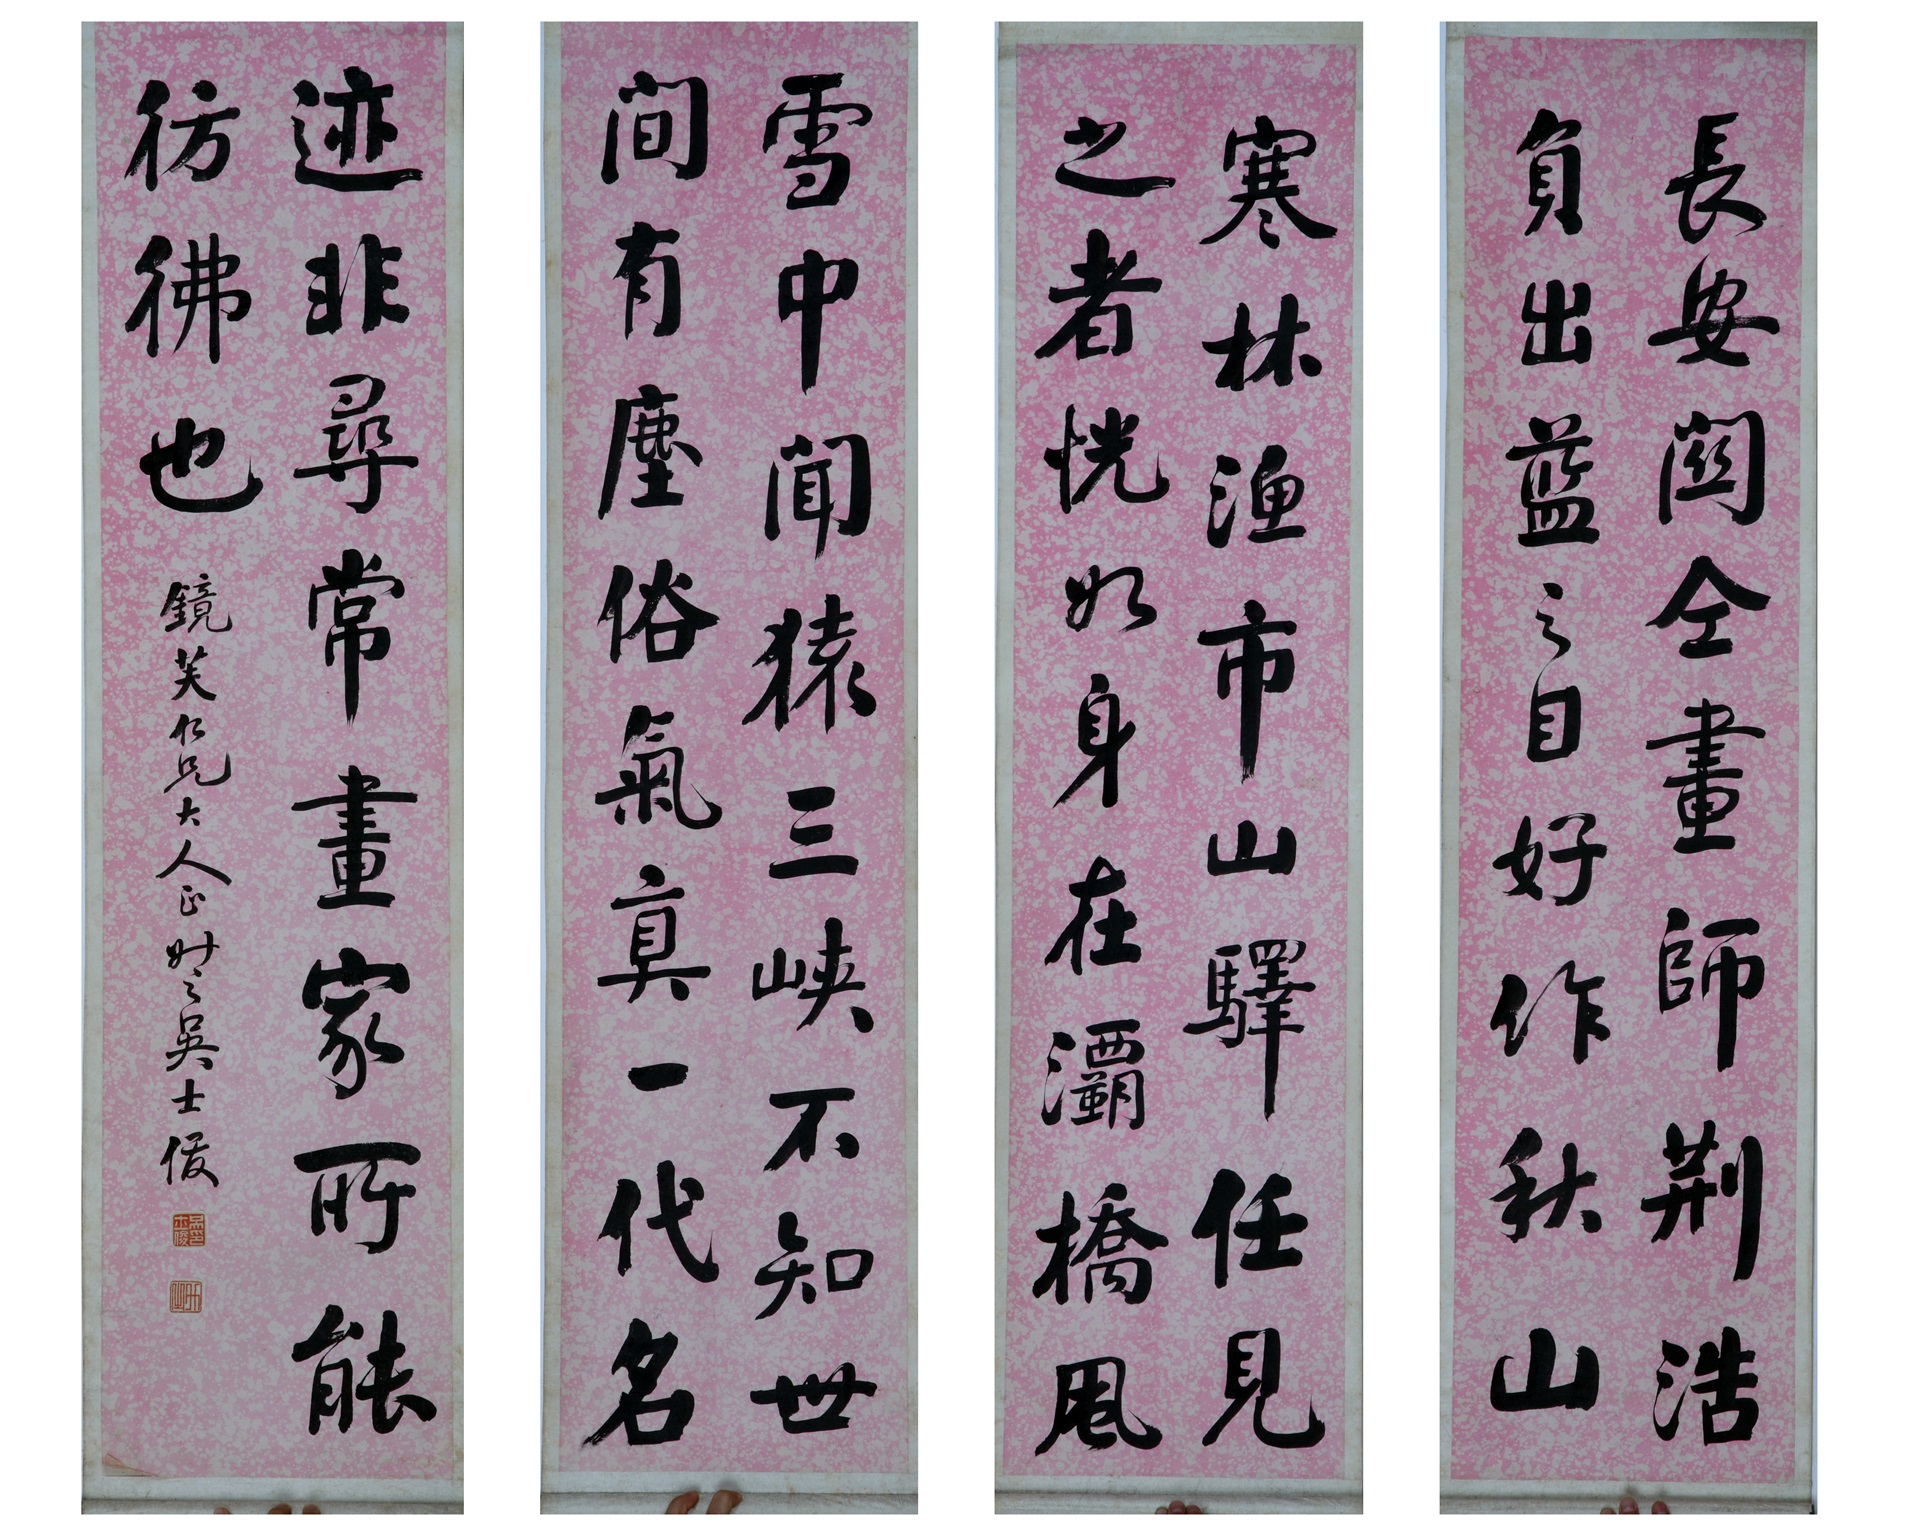 長安関仝畫師荆浩
負出藍之目好作秋山
寒林渔市山驛任見
之者恍如身在灞橋風
雪中聞猿三峽不知世
间有塵俗氣真一代名
迹非尋常畫家所能
彷彿也
鏡芙仁兄大人正 尗之吳士俊